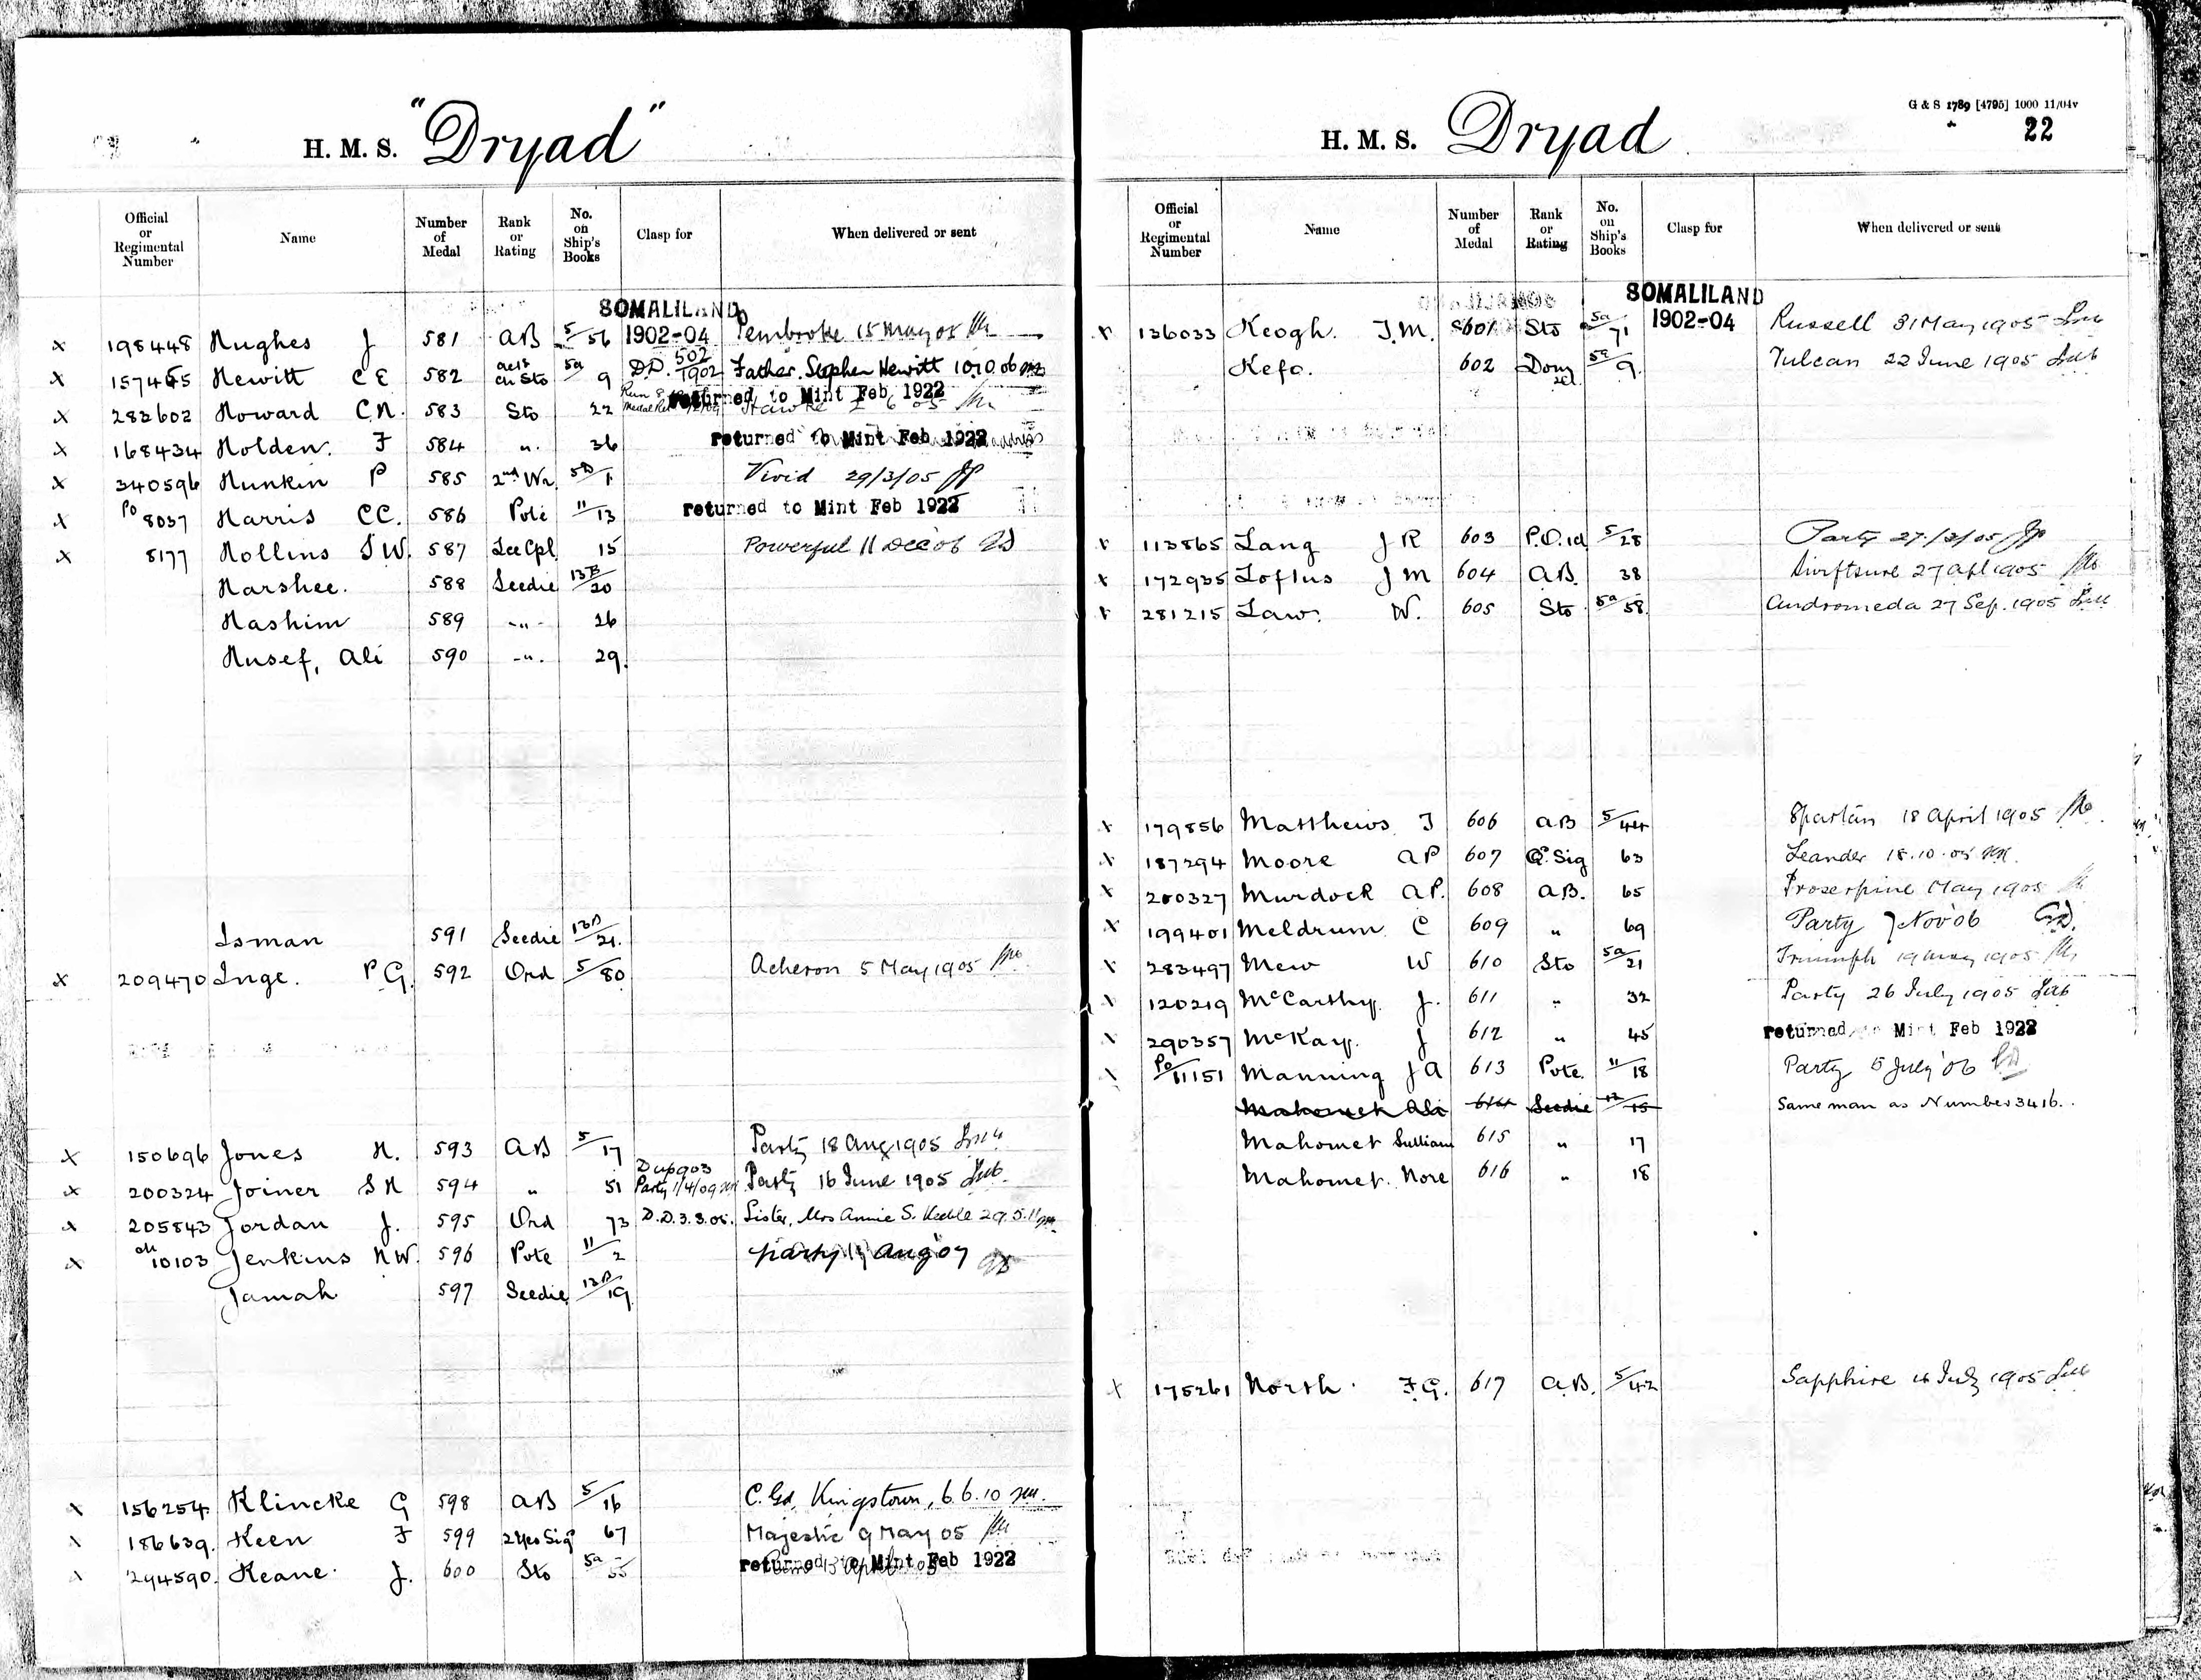 "Dryad"
H. M. S.
Official or Regimental Number | Name | Number of Medal | Rank or Rating | No. on Ship's Books | Clasp for | When delivered or sent
SOMALILAND
1902-04
x 198448 Hughes J 581 AB 5/56 Pembroke 15 May 05
x 157465 Hewitt C E 582 Sto 5a/9 D.D. 1902 Father, Stephen Hewitt 10.10.06
x 282602 Howard C.H. 583 Sto 22 returned to Mint Feb 1922
x 168434 Holden. F 584 ". 36 returned to Mint Feb 1922
x 340596 Hunkin P 585 2nd Wr 5B/1 Vivid 29/3/05
x Po 8037 Harris CC. 586 Pote 11/13 returned to Mint Feb 1922
x 8177 Hollins W. 587 Lce Cpl 15 Powerful 11 Dec 06
Harshee. 588 Seedie 13B/20
Hashim 589 -"- 26
Husef, Ali 590 -". 29.
Isman 591 Seedie 13B/21.
x 209470 Inge. P G. 592 Ord 5/80 Acheron 5 May 1905
x 150696 Jones H. 593 AB 5/17 Party 18 Aug 1905
x 200324 Joiner S H 594 " 51 Dup 903 Party 1/4/09 Party 16 June 1905
x 205843 Jordan J. 595 Ord 73 D.D. 3.3.05. Sister, Mrs Annie S. Keeble 29.5.11
x 10103 Jenkins H W. 596 Pote 11/2 party 19 Aug 07
Jamah 597 Seedie 13B/19
x 156254. Klincke G 598 AB 5/16 C. Gd. Kingstown, 6.6.10
x 186639. Keen F 599 2 Yeo Sig 67 Majestic 9 May 05
x 294590. Keane. J. 600 Sto 5a/55 returned to Mint Feb 1922
G & S 1789 [4795] 1000 11/04v
22
H. M. S. Dryad
Official or Regimental Number | Name | Number of Medal | Rank or Rating | No. on Ship's Books | Clasp for | When delivered or sent
SOMALILAND
1902-04
x 136033 Keogh. J.M. 601 Sto 5a/71 Russell 31 May 1905
Kefo. 602 Dom 5a/9. Vulcan 22 June 1905
x 113865 Lang J R 603 P.O. 1cl 5/28 Party 27/3/05
x 172935 Loftus J M 604 AB. 38 Swiftsure 27 Apl 1905
x 281215 Law. W. 605 Sto 5a/58. Andromeda 27 Sep. 1905
x 179856 Matthews J 606 AB 5/44 Spartan 18 April 1905
x 187294 Moore A P 607 Q. Sig 63 Leander 18.10.05
x 200327 Murdock A P. 608 AB. 65 Proserpine May 1905
x 199401 Meldrum C 609 " 69 Party 7 Nov '06
x 283497 Mew W 610 Sto 5a/21 Triumph 19 May 1905
x 120219 McCarthy. J. 611 " 32 Party 26 July 1905
x 290357 McKay. J 612 " 45 returned to Mint Feb 1922
Po/11151 Manning J A 613 Pote. 11/18 Party 5 July '06
Mahomet Ali 614 Seedie 13/15 Same man as Number 3416.
Mahomet Sulliam 615 " 17
Mahomet. Nore 616 " 18
x 175261 North. F.G. 617 AB. 5/42 Sapphire 16 July 1905